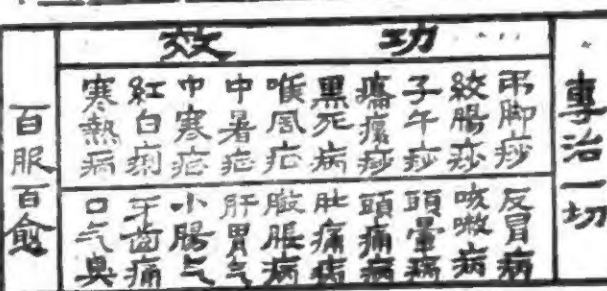 專治一切
功效
吊脚痧
絞腸痧
子午痧
癟瘰痧
黑死病
喉風症
中暑症
中寒症
紅白痢
寒熱病
反胃病
咳嗽病
頭暈病
頭痛病
肚痛病
臌脹病
肝胃气
小腸气
牙齒痛
口气臭
百服百愈